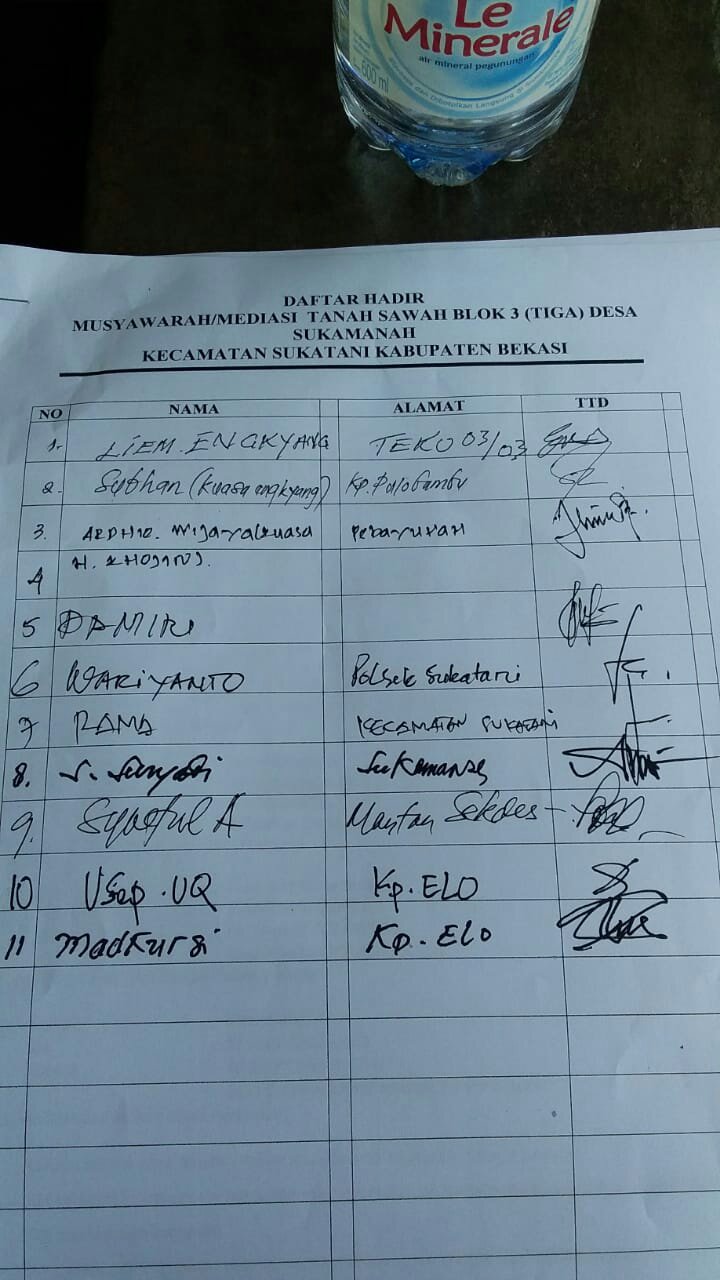 Le
Minerale
air mineral pegunungan
600 ml
DAFTAR HADIR
MUSYAWARAH/MEDIASI TANAH SAWAH BLOK 3 (TIGA) DESA
SUKAMANAH
KECAMATAN SUKATANI KABUPATEN BEKASI
NO NAMA ALAMAT TTD
1. LIEM. ENGKYANG TEKO 03/03
2. Subhan (kuasa engkyang) Kp.
3. wijaya kuasa Pebayuran
H.
4
5 DAMIRI
6 WARIYANTO Polsek Sukatani
7 RAMA KECAMATAN SUKATANI
8. S. Suryadi Sukamanah
9. Syaeful A Mantan Sekdes
10 Usep . UQ Kp. ELO
11 Madkursi Kp. ELO